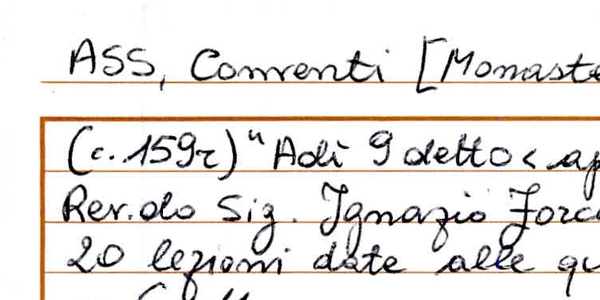 ASS, Conventi [Monaste
(c. 159r) "Adì 9 detto < ap
Rev.do Sig. Ignazio Forc
20 lezioni date alle qu